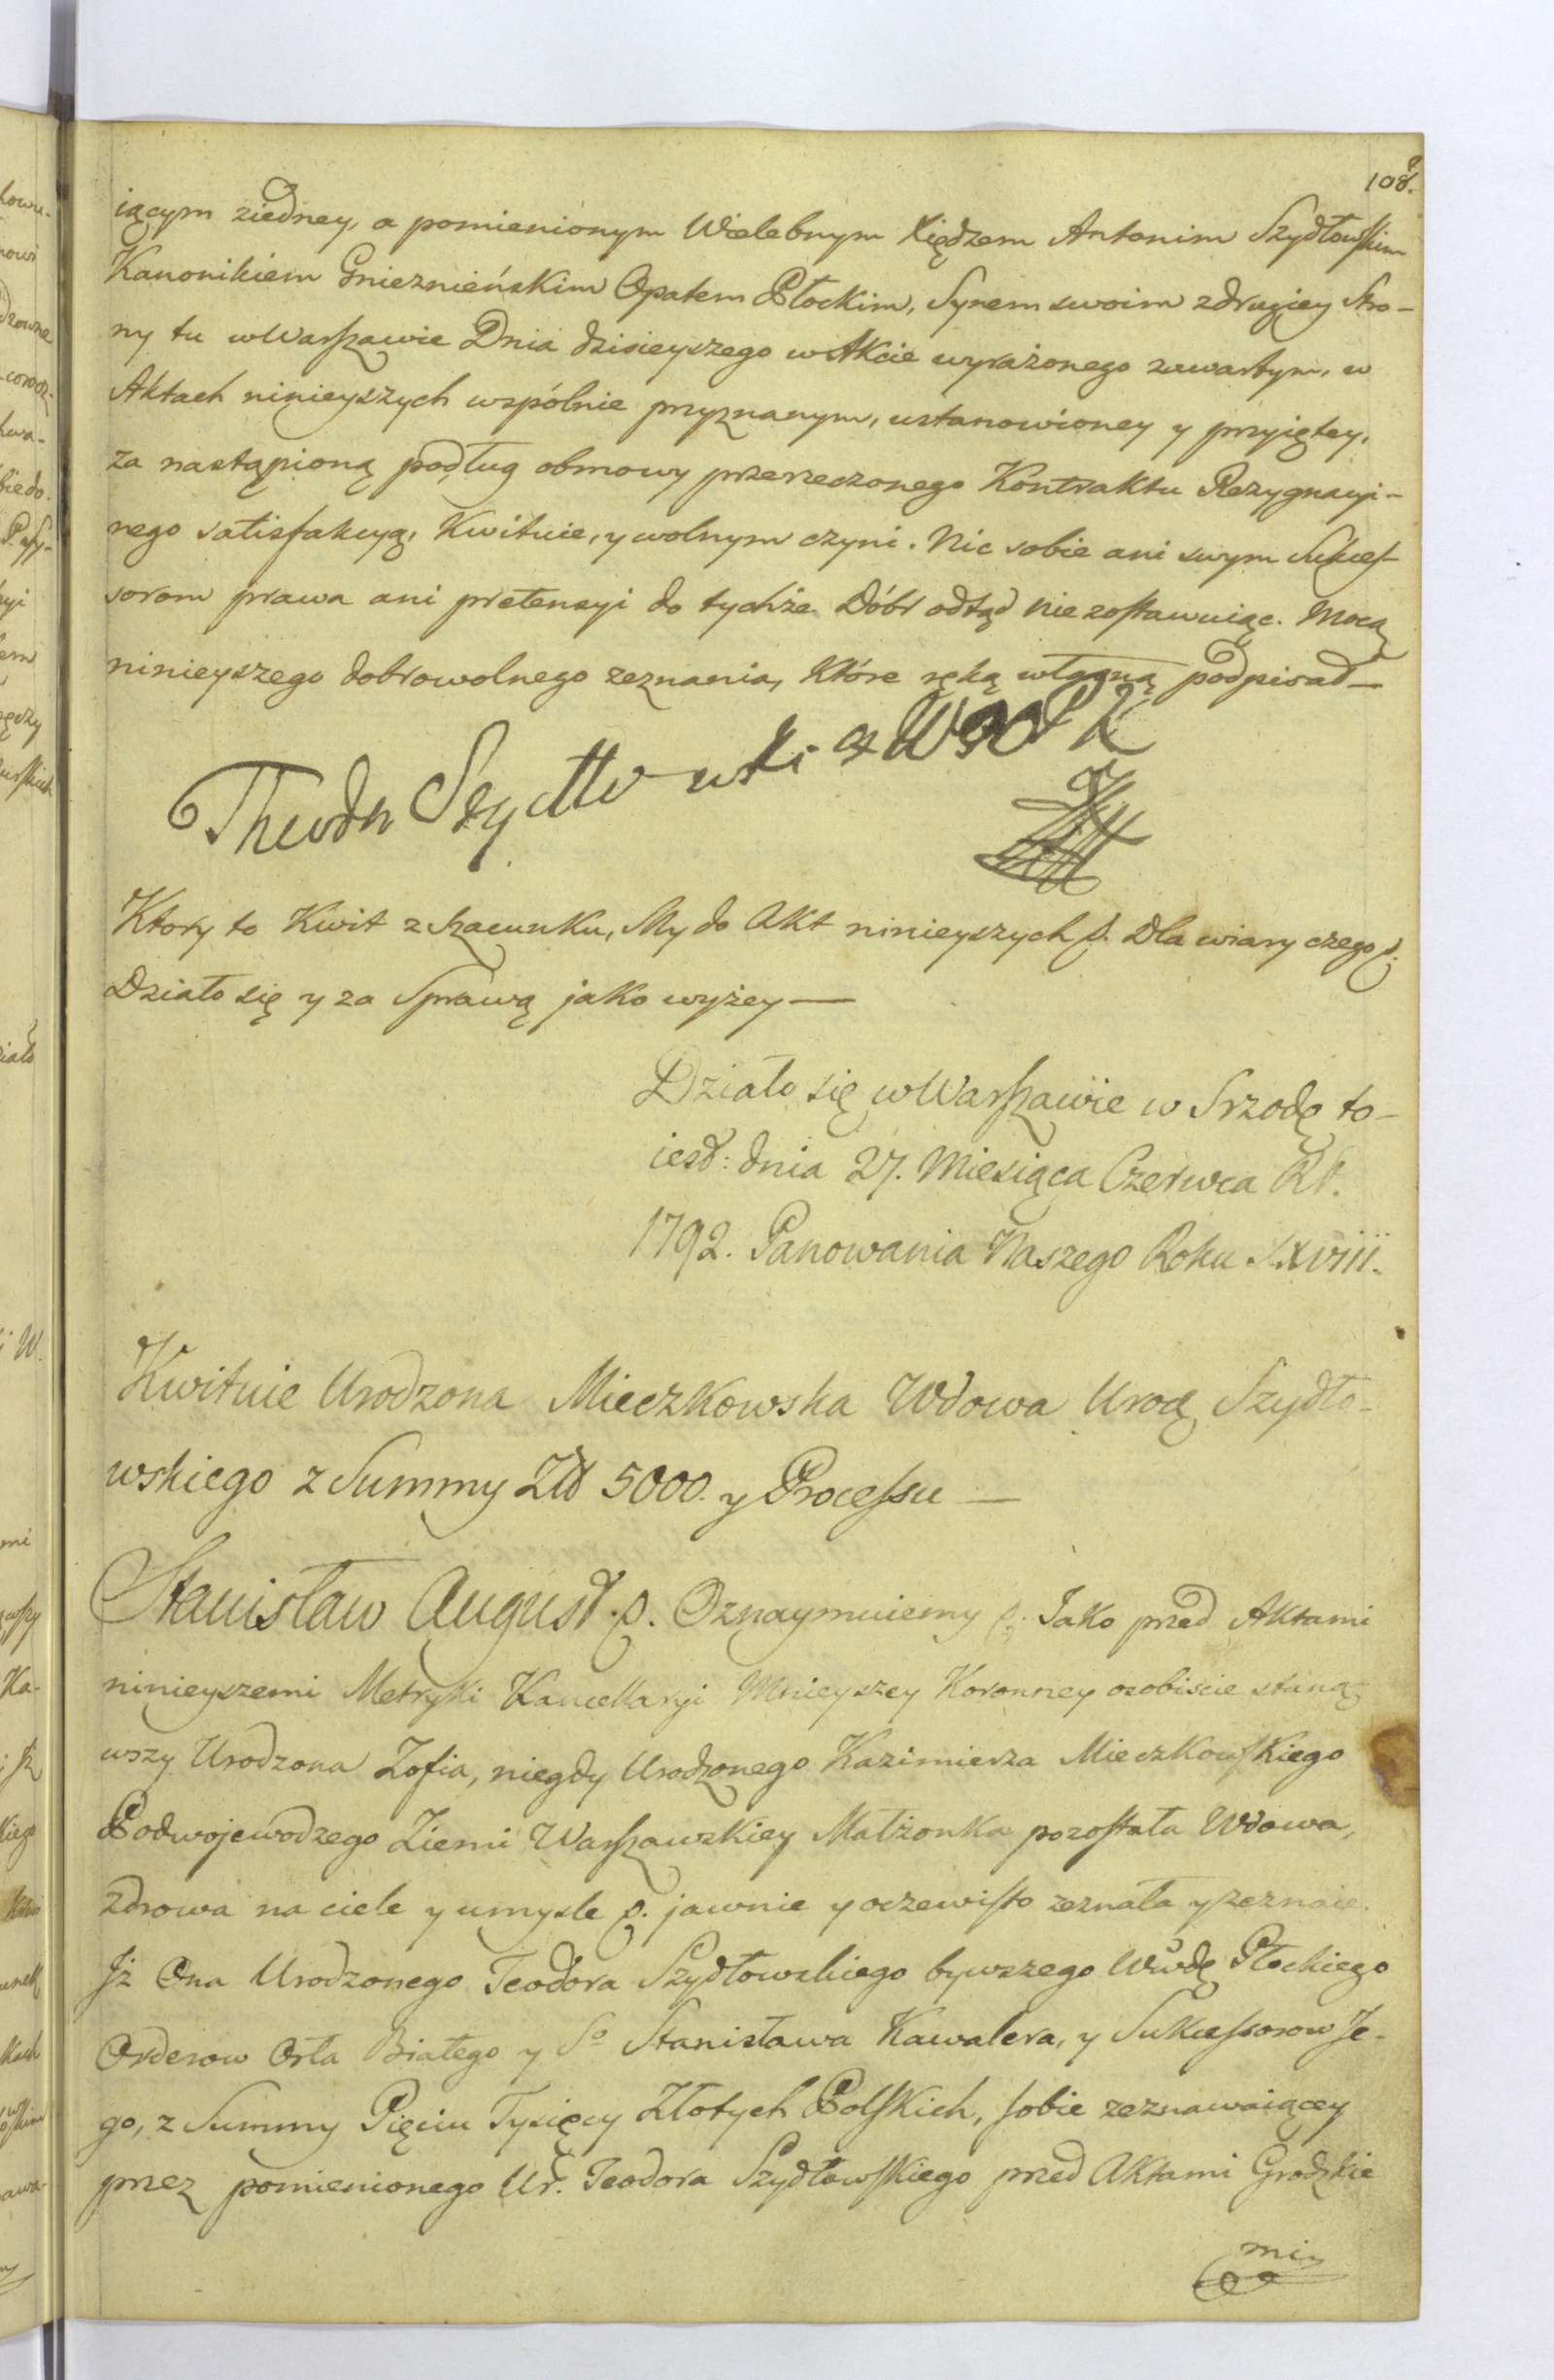 108.
iącym ziedney, a pomienionym Wielebnym Xiędzem Antonim Szydłowskim
Kanonikiem Gnieznieńskim Opatem Płockim, Synem swoim zdrugiey Stro-
ny tu w Warszawie Dnia dzisieyszego w Akcie wyrażonego zawartym, w
Aktach ninieyszych wspólnie przyznanym, ustanowioney y przyiętey,
za nastąpioną podług obmowy przerzeczonego Kontraktu Rezygnacyi-
nego satisfakcyą, Kwituie, y wolnym czyni. Nic sobie ani swym Sukces-
sorom prawa ani pretensyi do tychże Dóbr odtąd nie zostawuiąc. Mocą
ninieyszego dobrowolnego zeznania, Które ręką własną podpisał—
Theodor Szydłowski
Ktory to Kwit z Szacunku, My do Akt ninieyszych p. Dla wiary czego p.
Działo się y za Sprawą jako wyżey—
Działo się w Warszawie w Srzodę to-
iest: dnia 27. Miesiąca Czerwca RP.
1792. Panowania Naszego Roku XXVIII.
Kwituie Urodzona Mieczkowska Wdowa Urog Szydło-
wskiego z Summy Zło 5000. y Processu—
Stanisław August p. Oznaymuiemy p. Jako przed Aktami
ninieyszemi Metryki Kancellaryi Mnieyszey Koronney osobiście staną-
wszy Urodzona Zofia, niegdy Urodzonego Kazimierza Mieczkowskiego
Podwojewodzego Ziemi Warszawskiey Małżonka pozostała Wdowa,
zdrowa na ciele y umysle p. jawnie y oczewisto zeznała y zeznaie.
Iż Ona Urodzonego Teodora Szydłowskiego bywszego Wwdę Płockiego
Orderow Orła Białego y So Stanisława Kawalera, y Sukcessorow Je-
go, z Summy Pięciu Tysięcy Złotych Polskich, sobie zeznawaiącey
przez pomienionego Ur. Teodora Szydłowskiego przed Aktami Grodzkie
mi